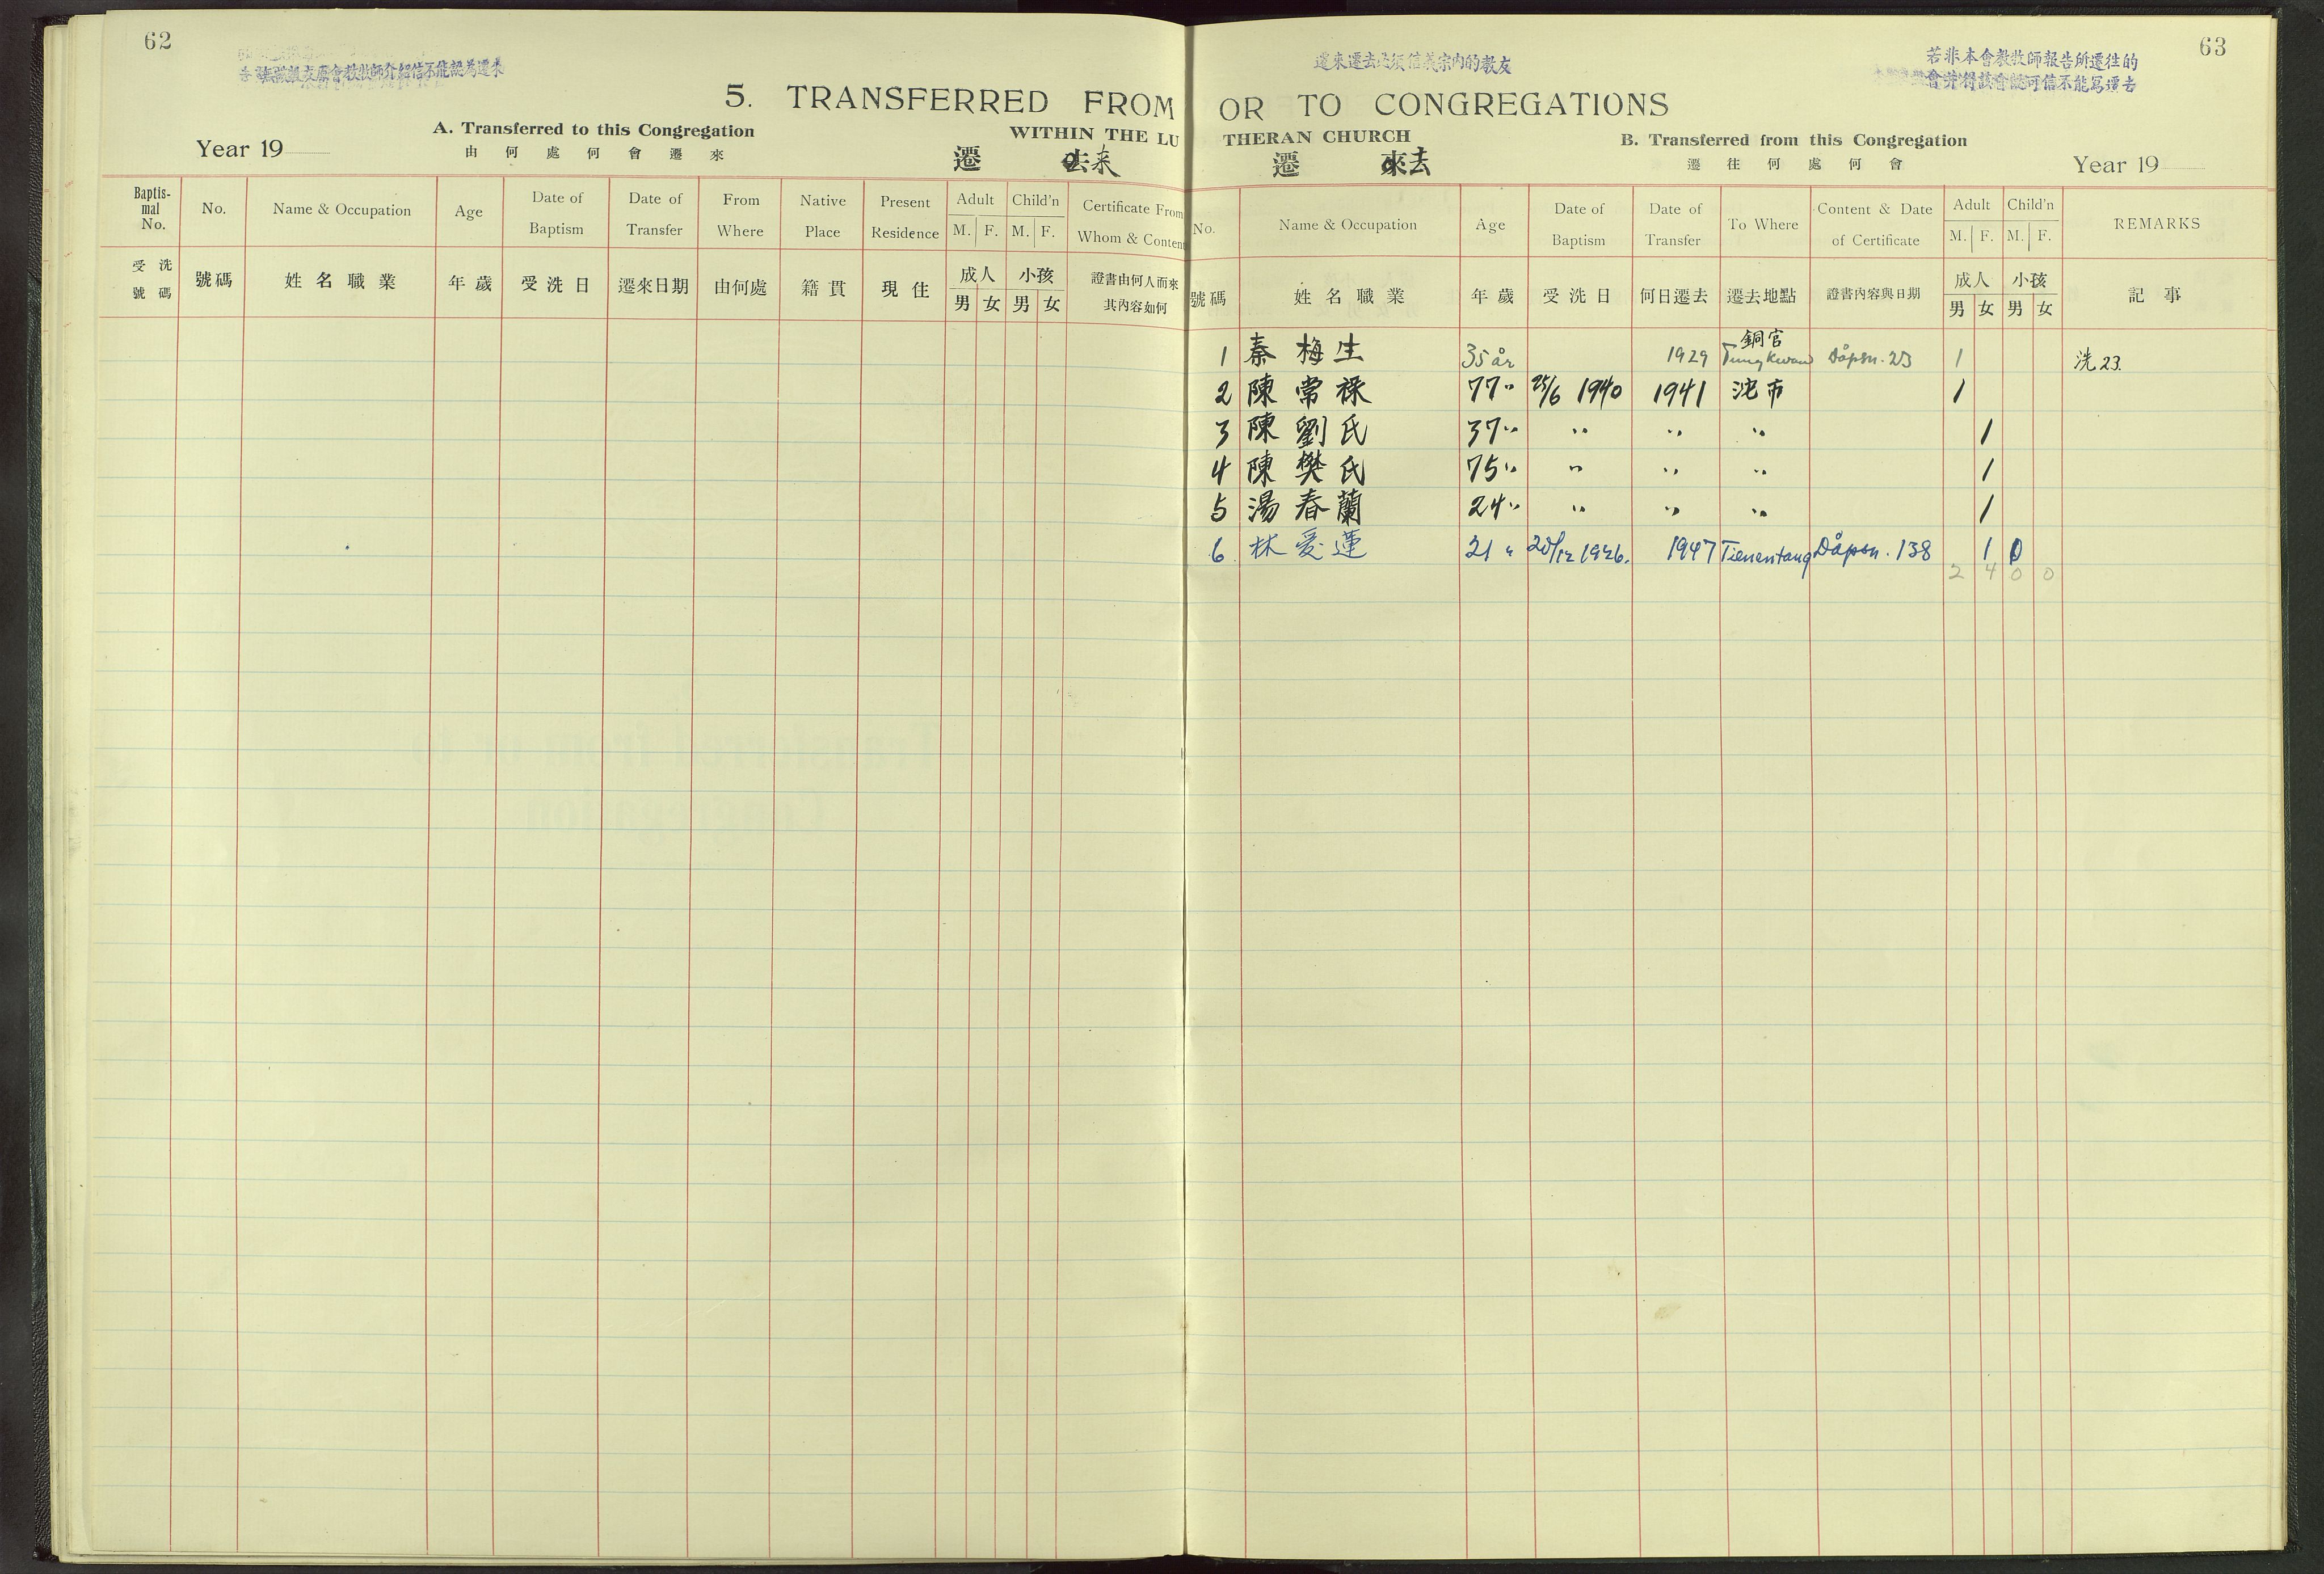 62
5. TRANSFERRED FROM
A. Transferred to this Congregation
WITHIN THE LU
由何處何會遷來
Year 19
遷 去来
Baptismal No. No. Name & Occupation Age Date of Baptism Date of Transfer From Where Native Place Present Residence Adult M. F. Child'n M. F. Certificate From Whom & Content
受洗號碼 號碼 姓名職業 年歲 受洗日 遷來日期 由何處 籍貫 現住 成人 男 女 小孩 男 女 證書由何人而來其內容如何
63
遷來遷去必須信義宗內的教友
若非本會教牧師報告所遷往的
會並得該會認可信不能寫遷去
OR TO CONGREGATIONS
THERAN CHURCH
B. Transferred from this Congregation
遷往何處何會
Year 19
遷 來去
No. Name & Occupation Age Date of Baptism Date of Transfer To Where Content & Date of Certificate Adult M. F. Child'n M. F. REMARKS
號碼 姓名職業 年歲 受洗日 何日遷去 遷去地點 證書內容與日期 成人 男 女 小孩 男 女 記事
銅官
1 秦梅生 35 år 1929 Tungkwan Dåpsn. 23 1 洗23.
2 陳常祿 77 〃 25/6 1940 1941 沱市 1
3 陳劉氏 37 〃 〃 〃 〃 1
4 陳樊氏 75 〃 〃 〃 〃 1
5 湯春蘭 24 〃 〃 〃 〃 1
6. 林愛蓮 21 〃 20/12 1926. 1947 Tienentang Dåpsn. 138 1 0
2 4 0 0